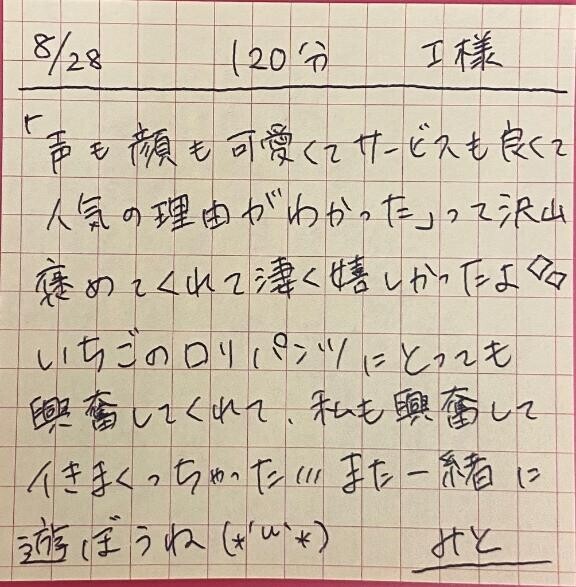 8/28 120分 I様
「声も顔も可愛くてサービスも良くて
人気の理由がわかった」って沢山
褒めてくれて凄く嬉しかったよ◇◇
いちごのロリパンツにとっても
興奮してくれて、私も興奮して
イきまくっちゃった/// また一緒に
遊ぼうね(*´u`*) みと